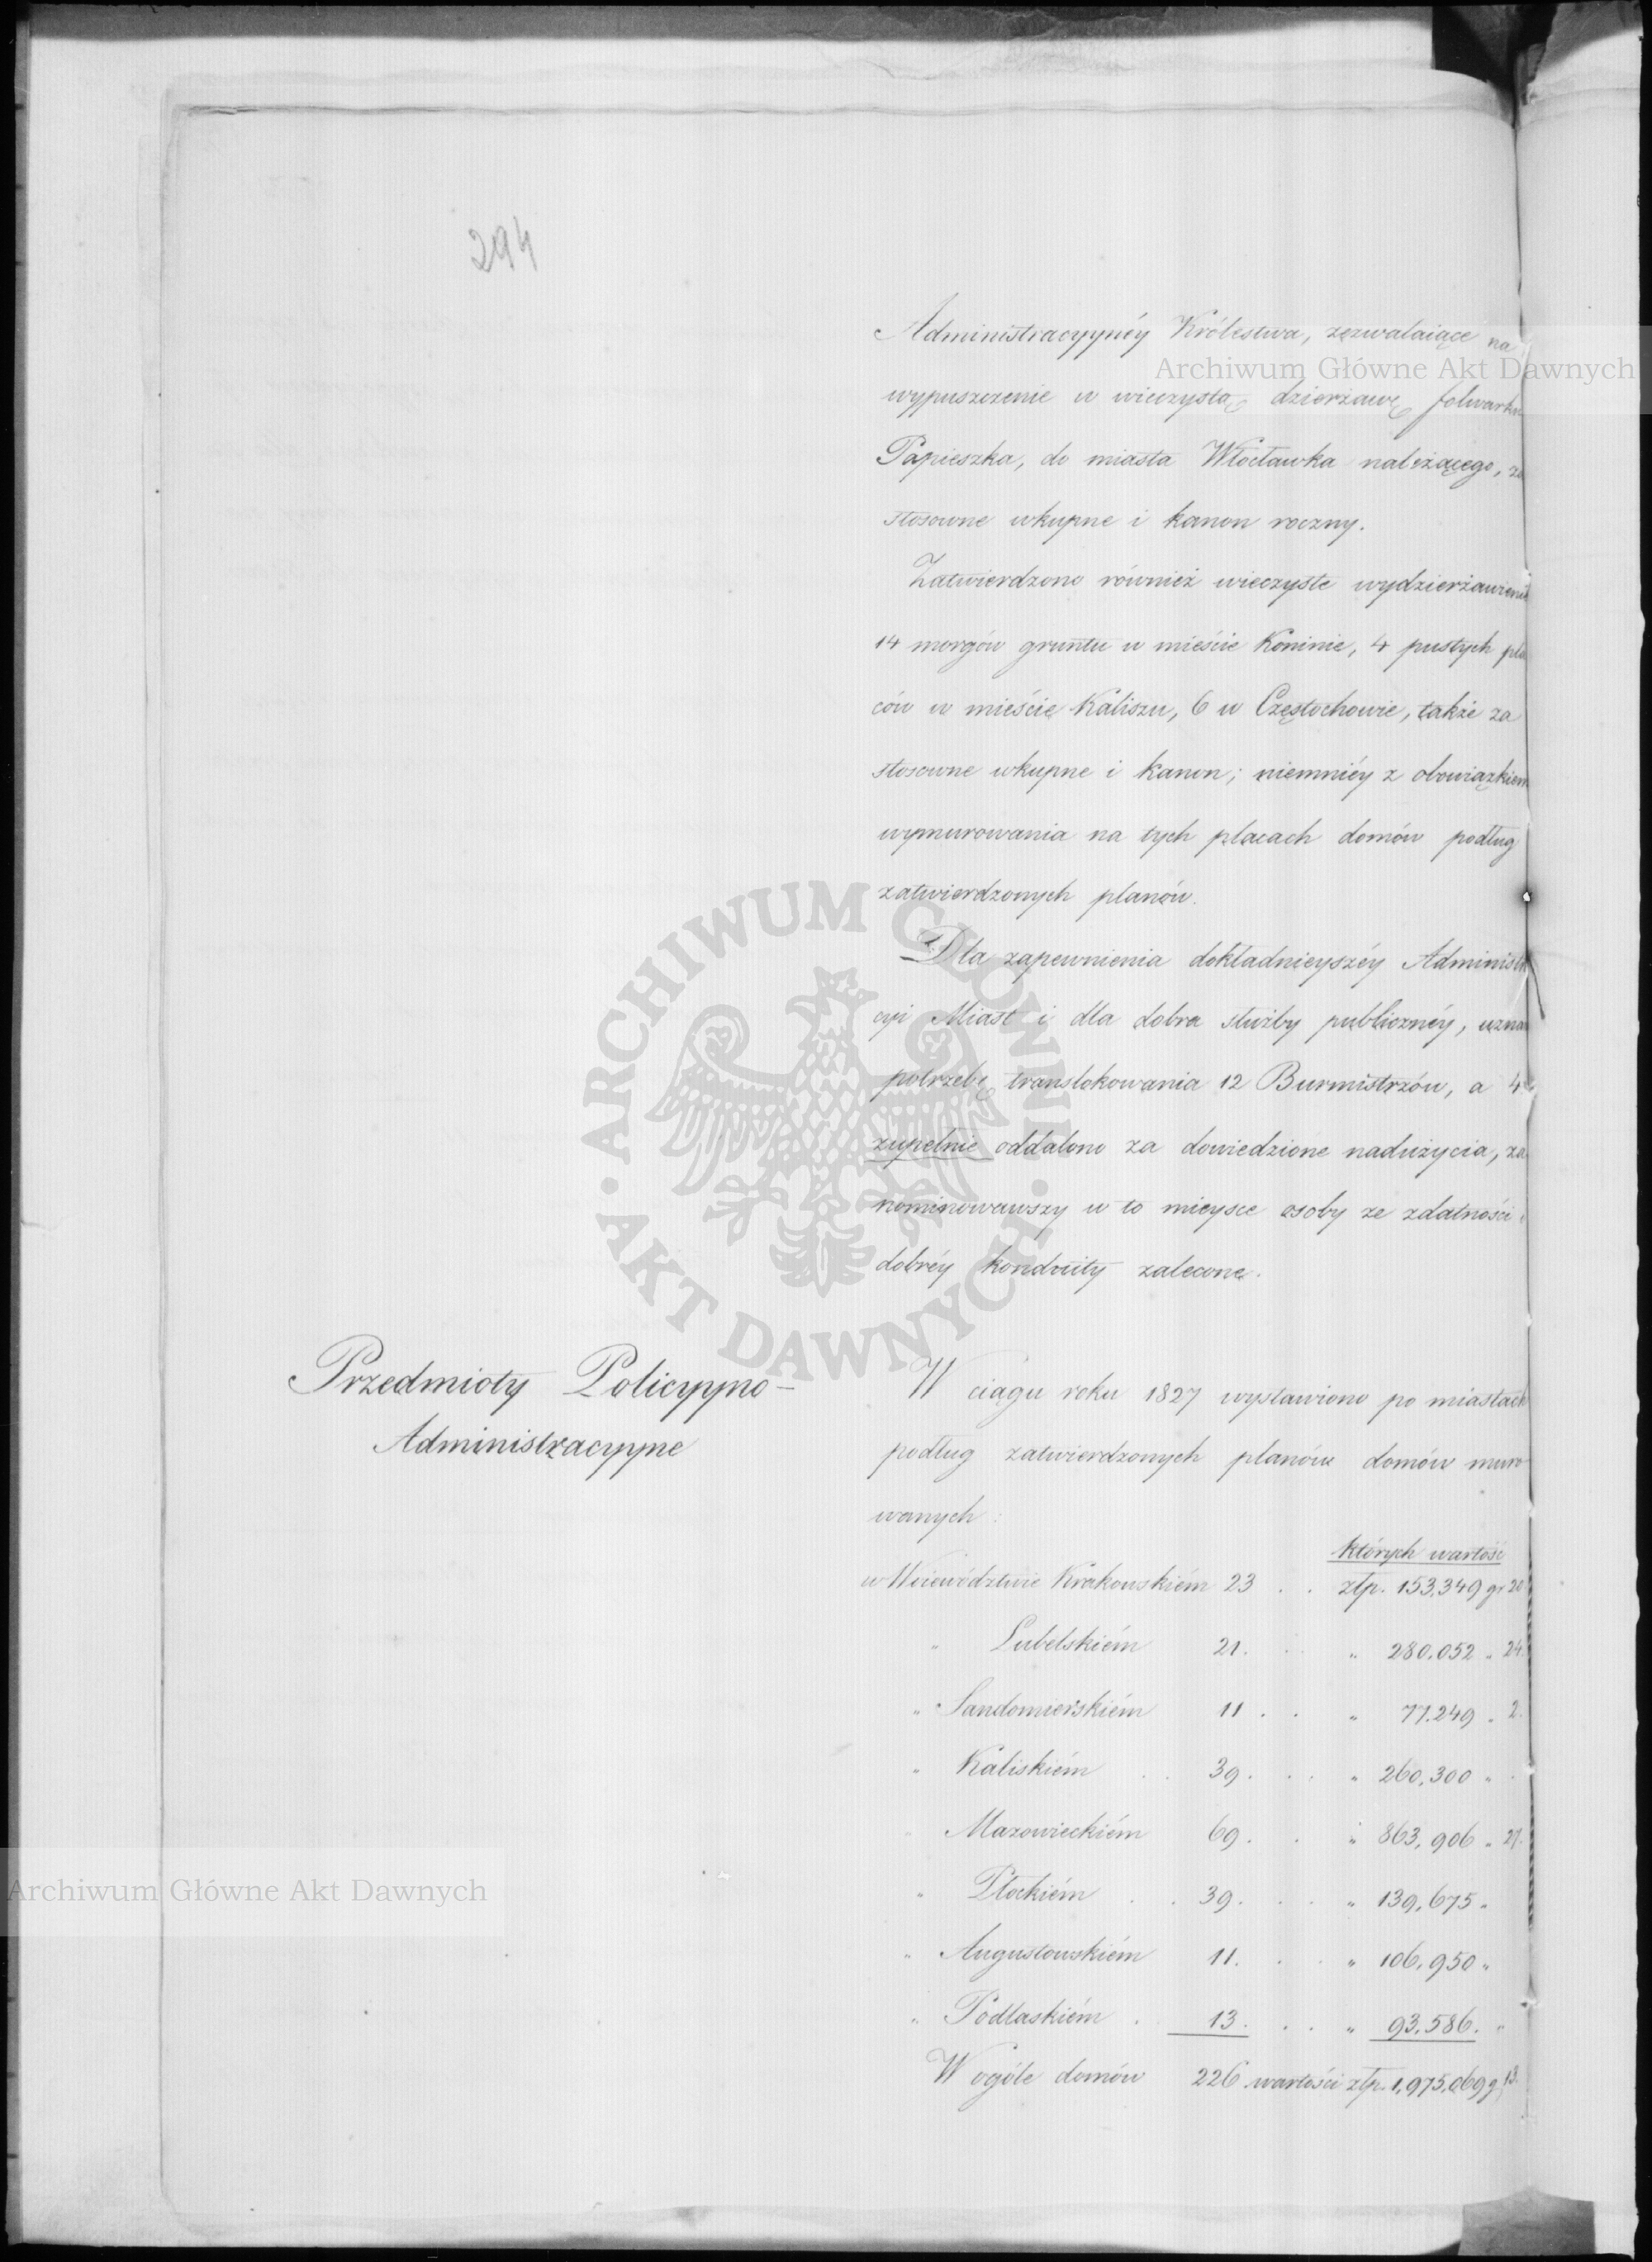 294
Administracyynéy Królestwa, zezwalaiące na
wypuszczenie w wieczystą dzierżawę folwarku
Papieszka, do miasta Włocławka należącego, za
stosowne wkupne i kanon roczny.
Zatwierdzono również wieczyste wydzierżawienie
14 morgów gruntu w mieście Koninie, 4 pustych pla
ców w mieście Kaliszu, 6 w Częstochowie, także za
stosowne wkupne i kanon; niemniéy z obowiązkiem
wymurowania na tych placach domów podług
zatwierdzonych planów.
Dla zapewnienia dokładnieyszéy Administra
cyi Miast i dla dobra służby publicznéy, uznano
potrzebę translokowania 12 Burmistrzów, a 4
zupełnie oddalono za dowiedzione nadużycia, za
nominowawszy w to mieysce osoby ze zdatności i
dobréy konduity zalecone.
Przedmioty Policyyno-
Administracyyne
W ciągu roku 1827 wystawiono po miastach
podług zatwierdzonych planów domów muro
wanych:
których wartość
w Woiewództwie Krakowskiém 23 . . złp. 153,349 gr 20
" Lubelskiém 21. . . " 280,052 " 24.
" Sandomierskiém 11 . . " 77.249 " 2.
" Kaliskiém . . 39. . . " 260,300 " .
" Mazowieckiém 69. . " 863,906 " 27.
" Płockiém . . 39. . . " 139,675 "
" Augustowskiém 11. . . " 106,950 "
" Podlaskiém . 13. . . " 93.586. "
W ogóle domów 226 wartości złp. 1,975,069 g 13.
Archiwum Główne Akt Dawnych
Archiwum Główne Akt Dawnych
ARCHIWUM GŁÓWNE · AKT DAWNYCH ·